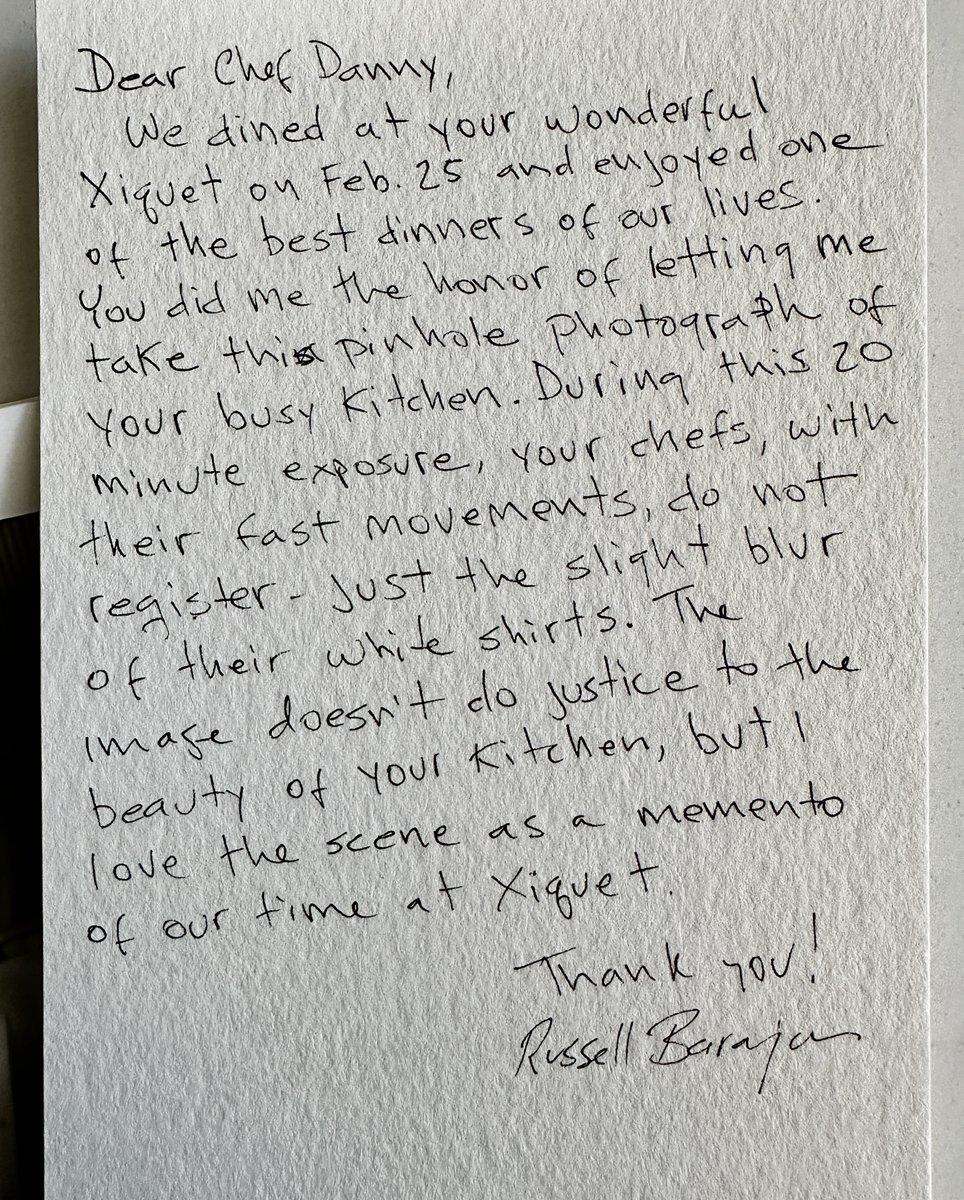 Dear Chef Danny,
We dined at your wonderful
Xiquet on Feb. 25 and enjoyed one
of the best dinners of our lives.
You did me the honor of letting me
take this pinhole photograph of
your busy kitchen. During this 20
minute exposure, your chefs, with
their fast movements, do not
register - just the slight blur
of their white shirts. The
image doesn't do justice to the
beauty of your kitchen, but I
love the scene as a memento
of our time at Xiquet.
Thank you!
Russell